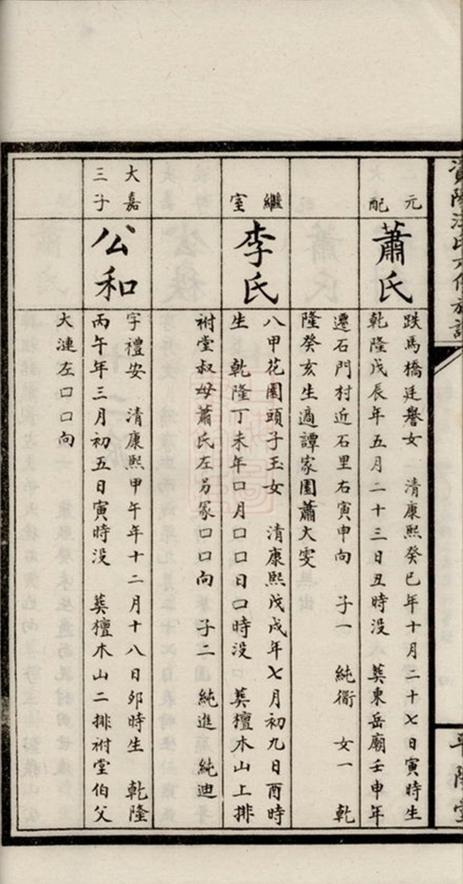 元配
蕭氏
跌馬橋廷譽女 清康熙癸巳年十月二十七日寅時生
乾隆戊辰年五月二十三日丑時没 葬東岳廟壬申年
遷石門村近石里右寅申向 子一 純衢 女一 乾
隆癸亥生適譚家園蕭大雯
繼室
李氏
八甲花園頭子玉女 清康熙戊戌年七月初九日酉時
生 乾隆丁未年口月口口日口時没 葬檀木山上排
祔堂叔母蕭氏左另冢口口向 子二 純進 純迪
大嘉三子
公和
字禮安 清康熙甲午年十二月十八日卯時生 乾隆
丙午年三月初五日寅時没 葬檀木山二排祔堂伯父
大漣左口口向